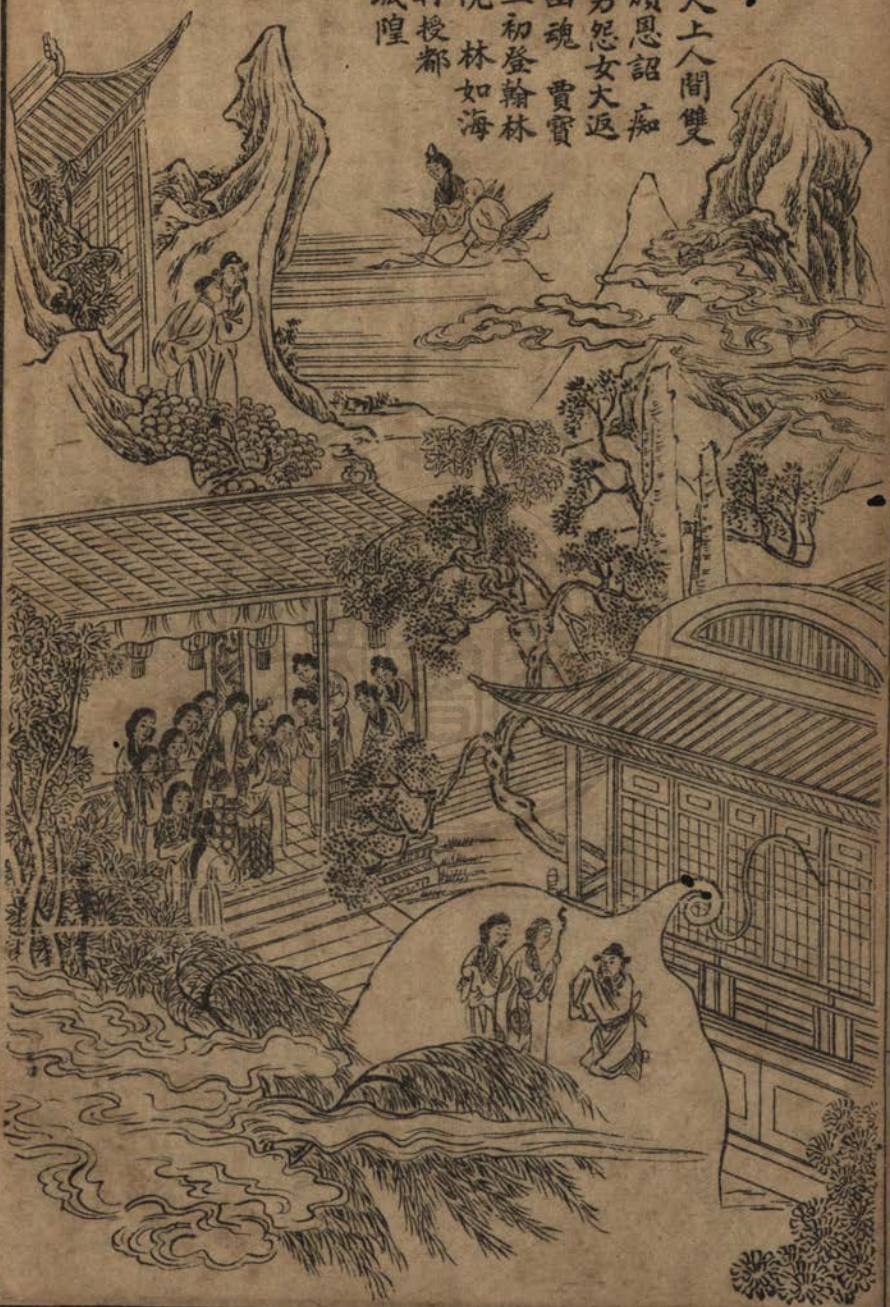 天上人間雙
頒恩詔 痴
男怨女大返
幽魂 賈寶
玉初登翰林
院 林如海
陞授都
城隍